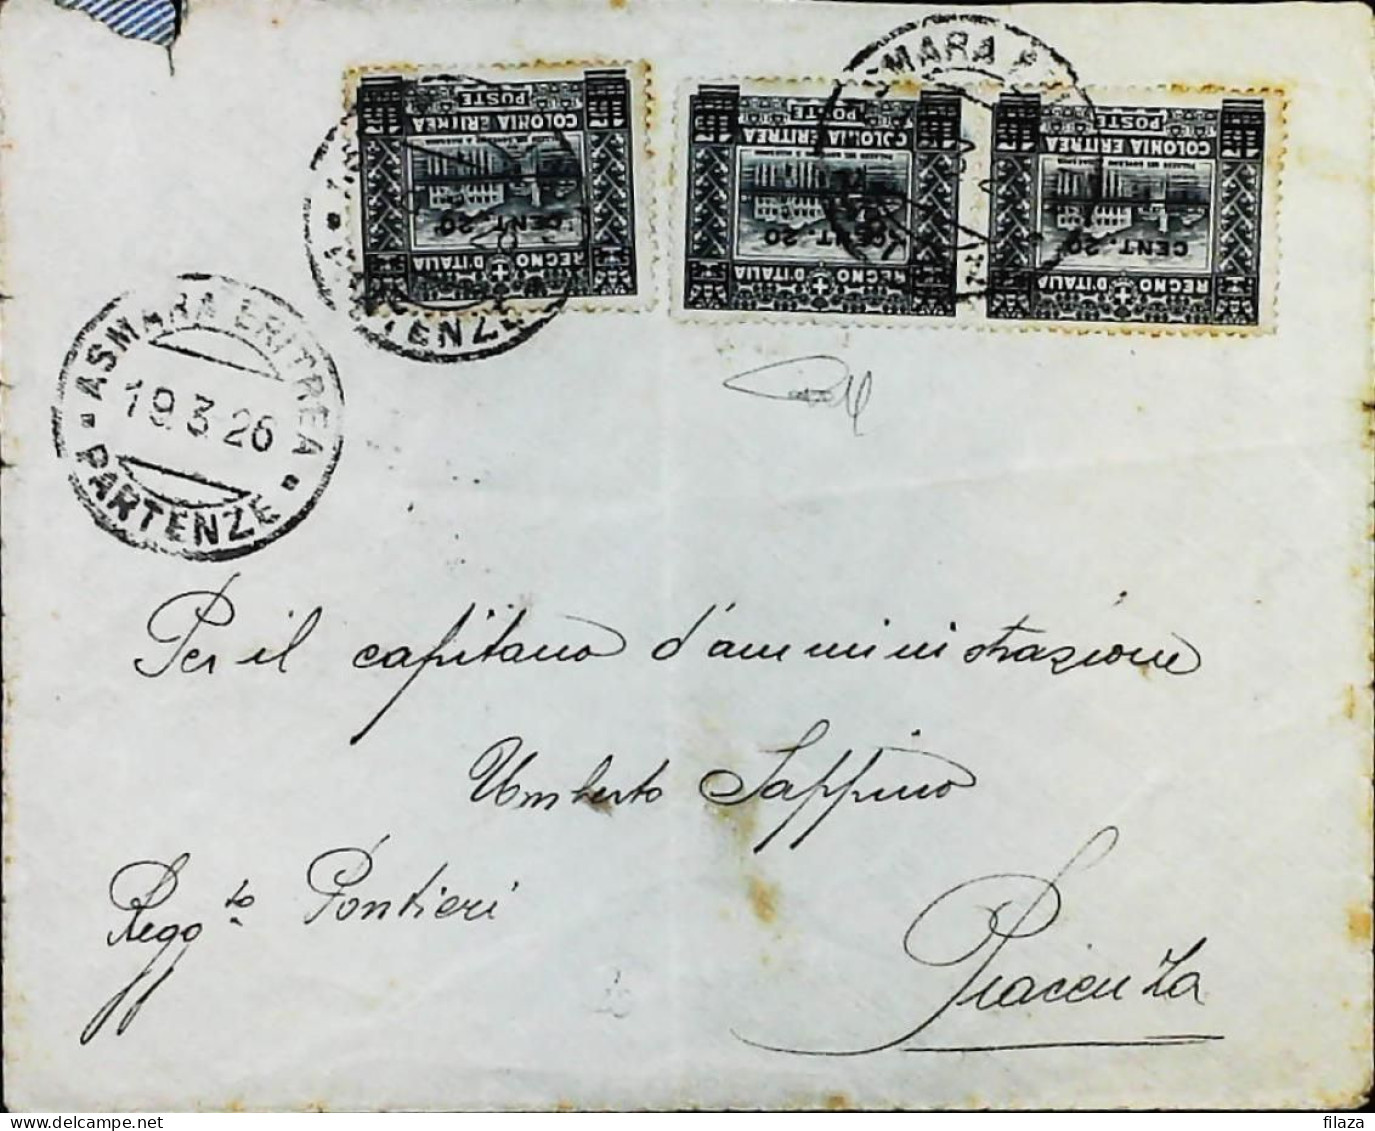 POSTE
COLONIA ERITREA
15 15
CENT. 20
REGNO D'ITALIA
POSTE
COLONIA ERITREA
15 15
CENT. 20
REGNO D'ITALIA
POSTE
COLONIA ERITREA
15 15
CENT. 20
REGNO D'ITALIA
ASMARA ERITREA
19.3.26
PARTENZE
Per il capitano d'amministrazione
Umberto Sappino
Regg.to Pontieri
Piacenza
filaza